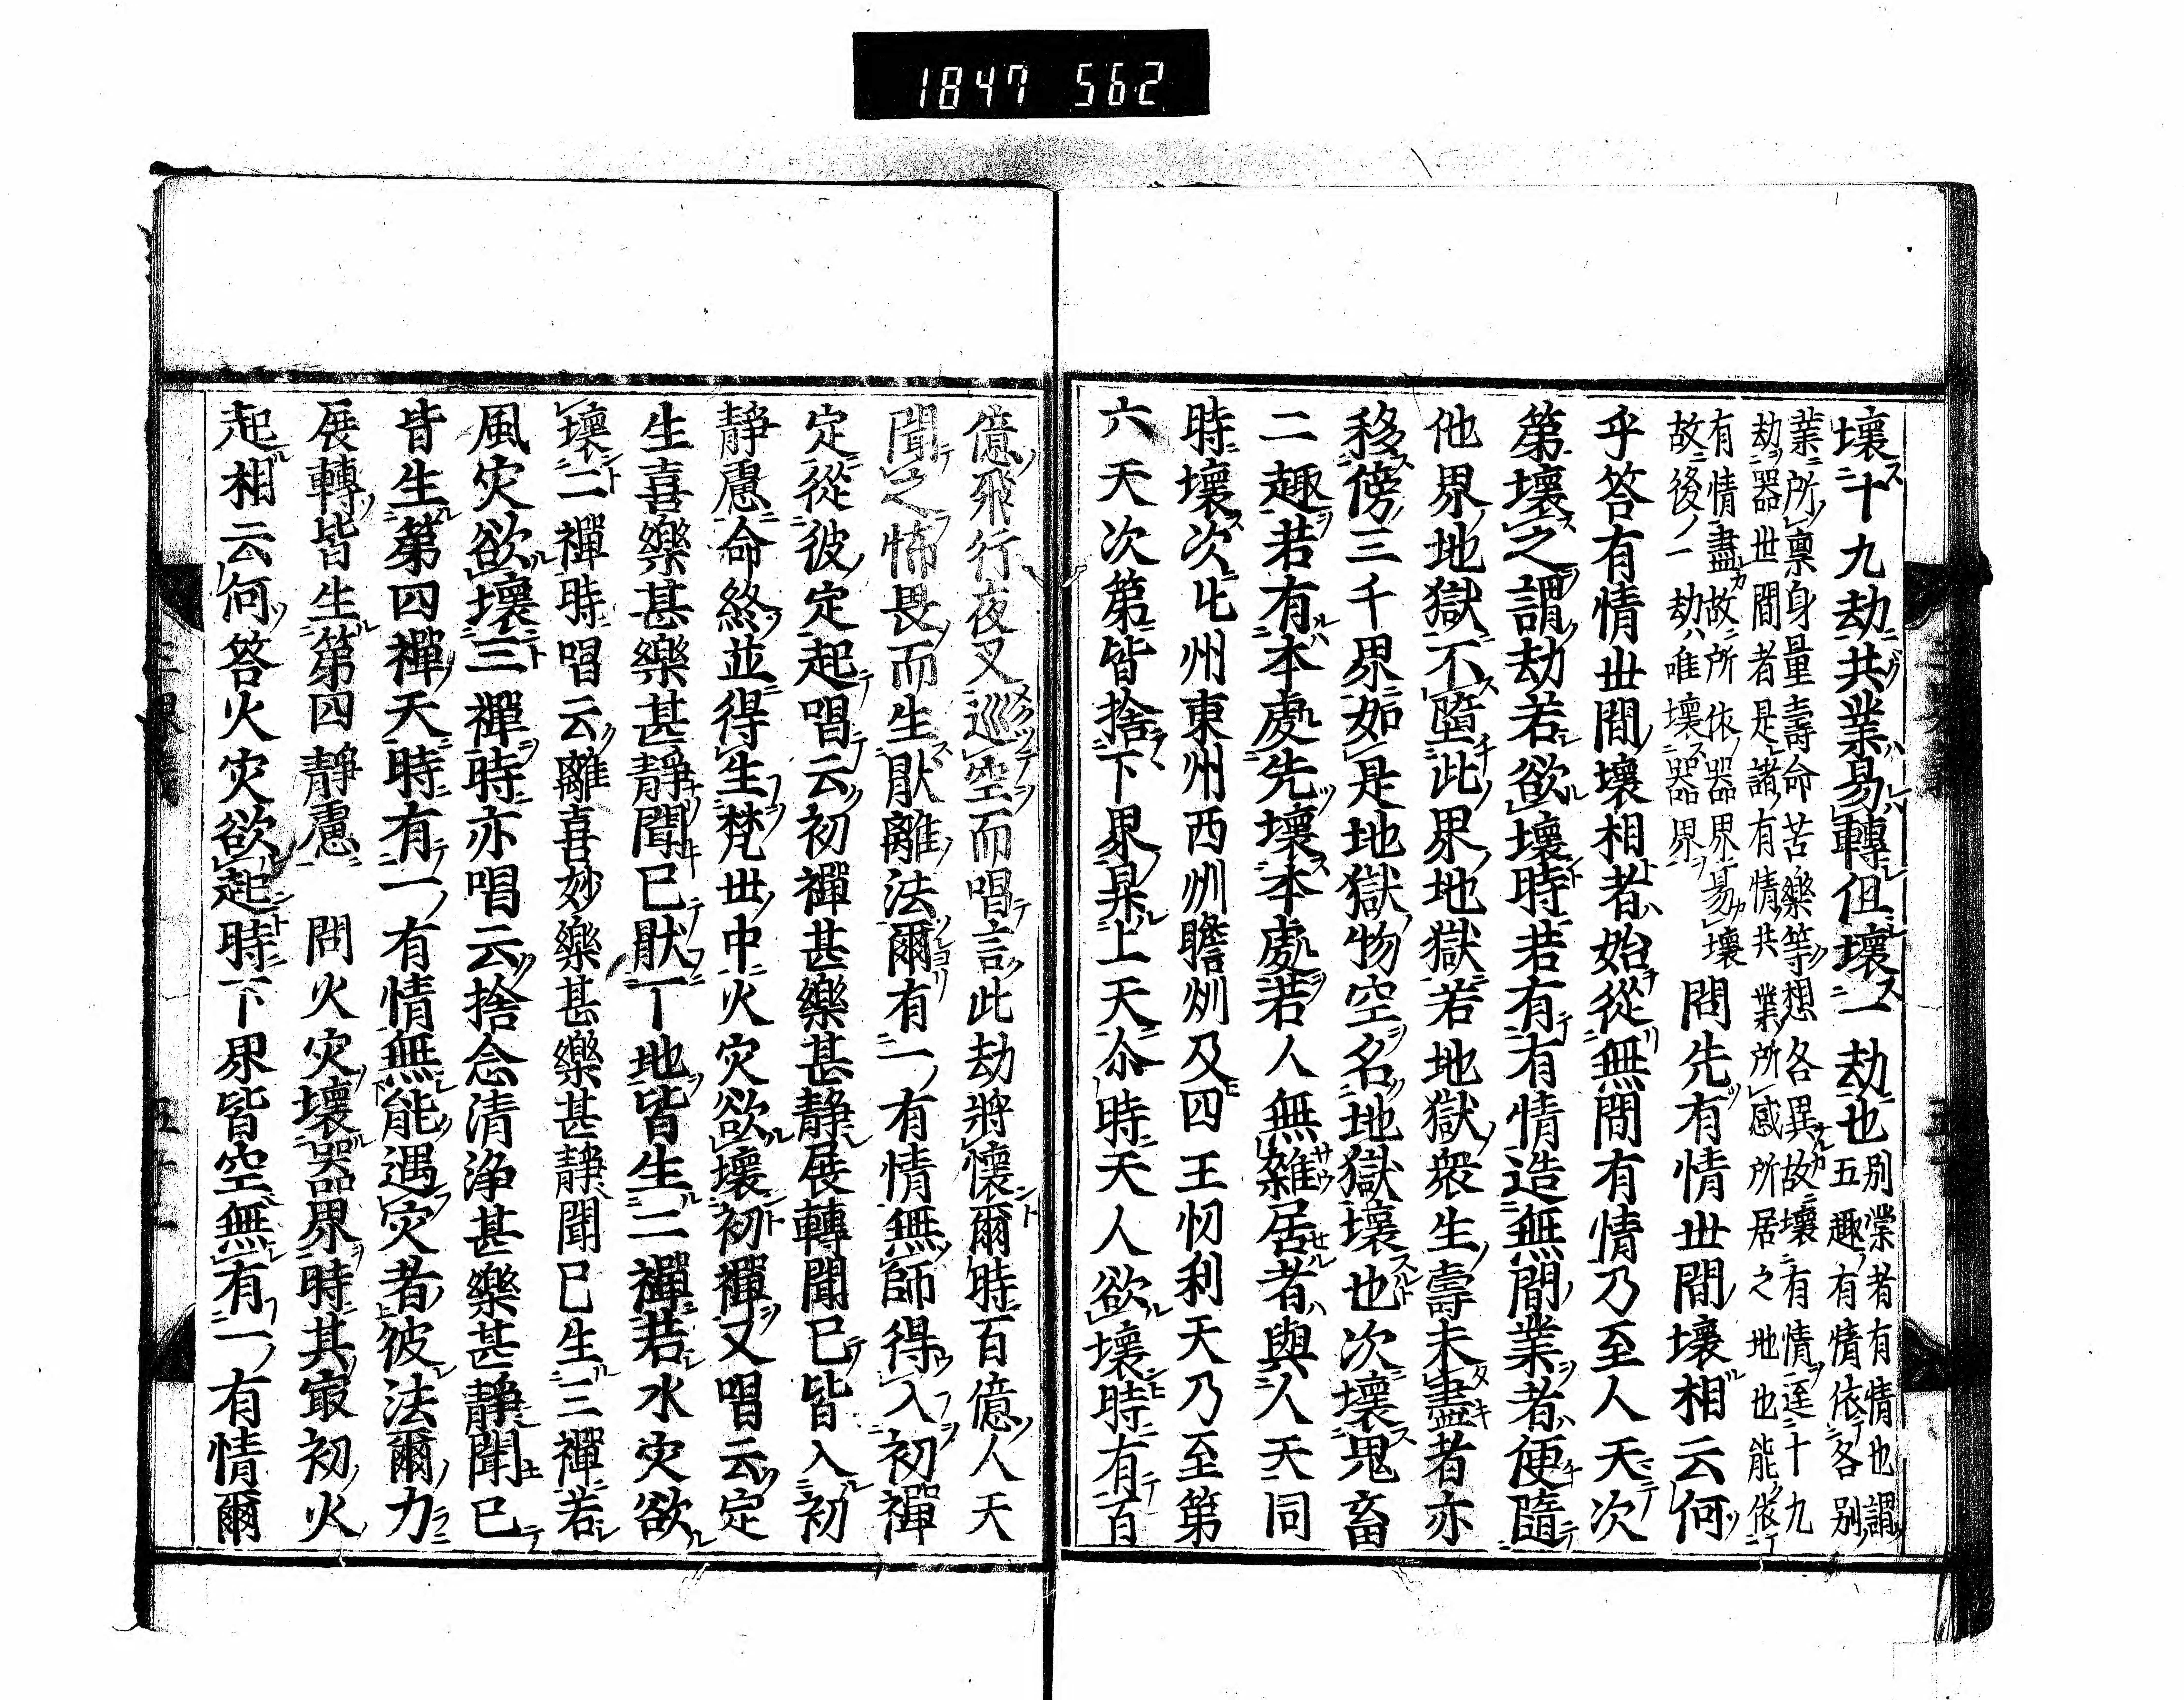 1847 562
壞十九劫共業易轉但壞一劫也別業者有情也謂
五趣有情依各別
業所稟身量壽命苦樂等想各異故壞有情逕十九
劫器世間者是諸有情共業所感所居之地也能依
有情盡故所依器界易壞
故後一劫唯壞器界
問先有情世間壞相云何
乎答有情世間壞相者始從無間有情乃至人天次
第壞之謂劫若欲壞時若有有情造無間業者便隨
他界地獄不墮此界地獄若地獄衆生壽未盡者亦
移傍三千界如是地獄物空名地獄壞也次壞鬼畜
二趣若有本處先壞本處若人無雜居者與人天同
時壞次北州東州西州瞻州及四王忉利天乃至第
六天次第皆捨下界昇上天尒時天人欲壞時有百
億飛行夜叉巡空而唱言此劫將懷爾時百億人天
聞之怖畏而生猒離法爾有一有情無師得入初禪
定從彼定起唱云初禪甚樂甚靜展轉聞已皆入初
靜慮命終並得生梵世中火灾欲壞初禪又唱云定
生喜樂甚樂甚靜聞已猒下地皆生二禪若水灾欲
壞二禪時唱云離喜妙樂甚樂甚靜聞已生三禪若
風灾欲壞三禪時亦唱云捨念清淨甚樂甚靜聞已
皆生第四禪天時有一有情無能遇灾者彼法爾力
展轉皆生第四靜慮　問火灾壞器界時其㝡初火
起相云何答火灾欲起時下界皆空無有一有情爾